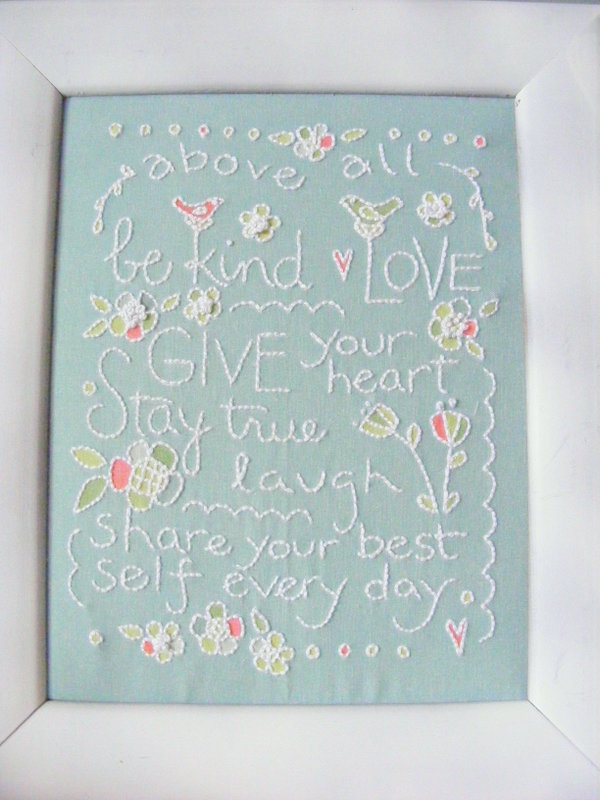 above all
be kind LOVE
GIVE your
heart
Stay true
laugh
share your best
self every day